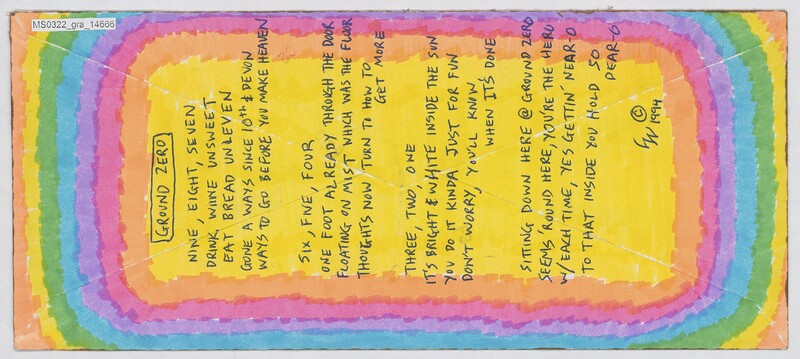 MS0322_gra_14666
GROUND ZERO
NINE, EIGHT, SEVEN
DRINK WINE UNSWEET
EAT BREAD UNLEVEN
GONE A WAYS SINCE 10th & DEVON
WAYS TO GO BEFORE YOU MAKE HEAVEN
SIX, FIVE, FOUR
ONE FOOT ALREADY THROUGH THE DOOR
FLOATING ON MIST WHICH WAS THE FLOOR
THOUGHTS NOW TURN TO HOW TO
GET MORE
THREE, TWO, ONE
IT'S BRIGHT & WHITE INSIDE THE SUN
YOU DO IT KINDA JUST FOR FUN
DON'T WORRY, YOU'LL KNOW
WHEN IT'S DONE
SITTING DOWN HERE @ GROUND ZERO
SEEMS 'ROUND HERE, YOU'RE THE HERO
W/ EACH TIME, YES GETTIN' NEAR-O
TO THAT INSIDE YOU HOLD SO
DEAR-O
©
1994